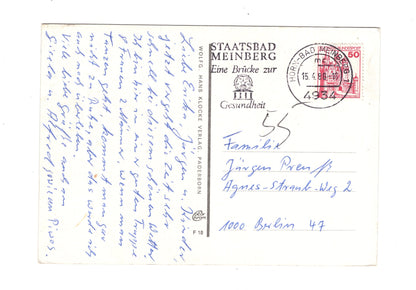 Liebe Erika, Jürgen u. Kinder,
jetzt vergeht die Zeit sehr
schnell bei diesem schönen Wetter
Ich bin hier in einer guten Truppe
7 Frauen 2 Männer, wenn man
Tanzen geht kommt man gar
nicht zu Ruhe, aber das werde ich
auch überleben.
Viele liebe Grüße auch an
WOLFG. HANS KLOCKE VERLAG, PADERBORN
F 18
STAATSBAD
MEINBERG
Eine Brücke zur
Gesundheit
HORN-BAD MEINBERG 1
mc
15.4.80.-1
4934
DEUTSCHE BUNDESPOST
50
55
Familie
Jürgen Preuß
Agnes-Straub-Weg 2
1000 Berlin 47